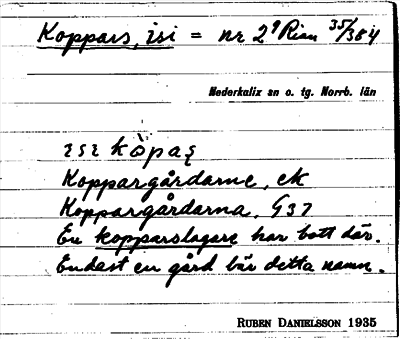 Koppars, isi = nr 2⁹ Rian 35/384
Nederkalix sn o. tg. Norrb. län
ısı kòpaʂ
Koppargårdarne, ek
Koppargårdarna, G37
En kopparslagare har bott där.
Endast en gård bär detta namn.
RUBEN DANIELSSON 1935